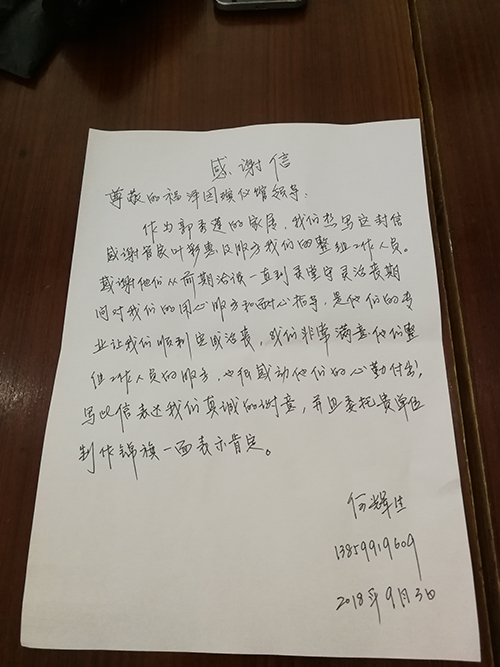 感谢信
尊敬的福泽园殡仪馆领导:
作为郭秀莲的家属，我们想写这封信
感谢管家叶彩惠及服务我们的整组工作人员。
感谢他们从前期洽谈一直到灵堂守灵治丧期
间对我们的用心服务和耐心指导，是他们的专
业让我们顺利完成治丧，我们非常满意他们整
组工作人员的服务，也很感动他们的心勤付出，
写此信表达我们真诚的谢意，并且委托贵单位
制作锦旗一面表示肯定。
何辉生
13859919609
2018年9月3日